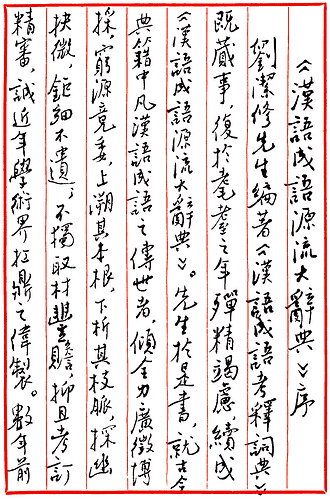 《漢語成語源流大辭典》序
劉潔修先生編著《漢語成語考釋詞典》
既蕆事,復於耄耋之年殫精竭慮,續成
《漢語成語源流大辭典》。先生於是書,就古今
典籍中凡漢語成語之傳世者,傾全力廣徵博
採,窮源竟委,上溯其本根,下析其枝脈,探幽
抉微,鉅細不遺,不獨取材豐贍,抑且考訂
精審,誠近年學術界扛鼎之偉製。數年前